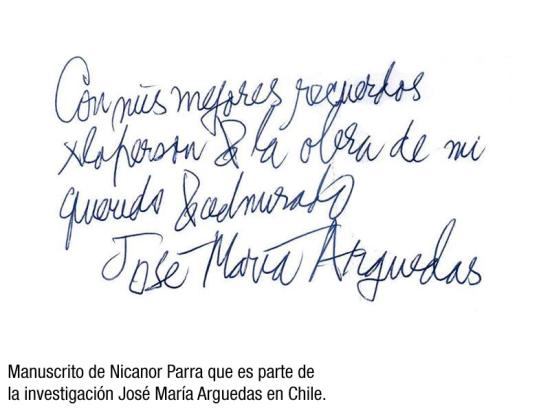 Con mis mejores recuerdos
x la person & la obra de mi
querido & admirado
José María Arguedas
Manuscrito de Nicanor Parra que es parte de
la investigación José María Arguedas en Chile.